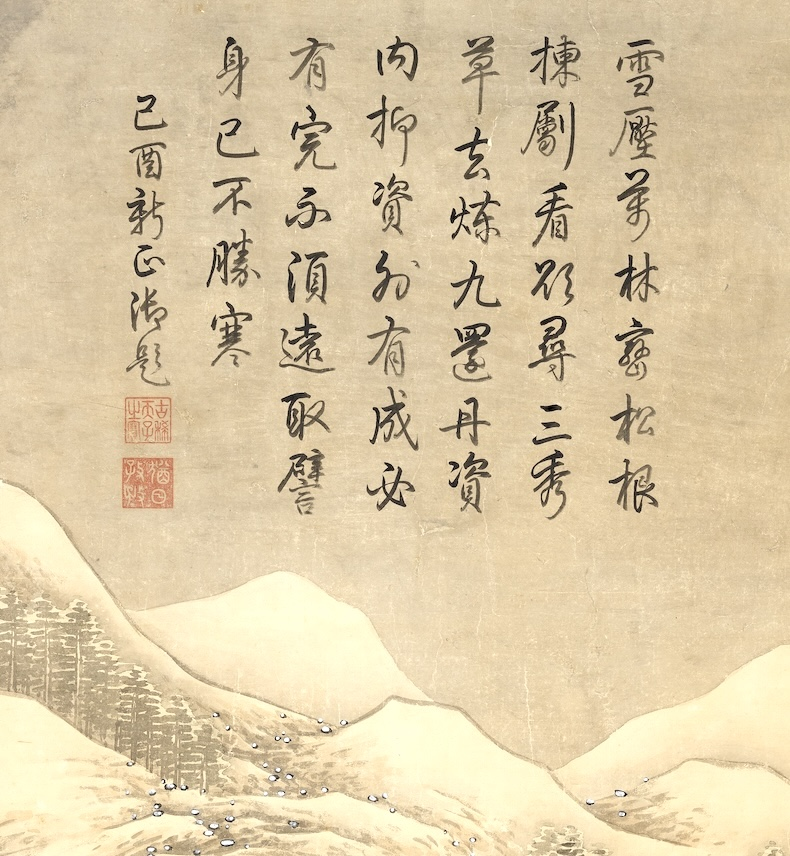 雪壓萬林巒松根
揀劚看欲尋三秀
草去煉九還丹資
内抑資外有成必
有完不須遠取譬
身已不勝寒
己酉新正御題
古稀天子之寶
猶日孜孜